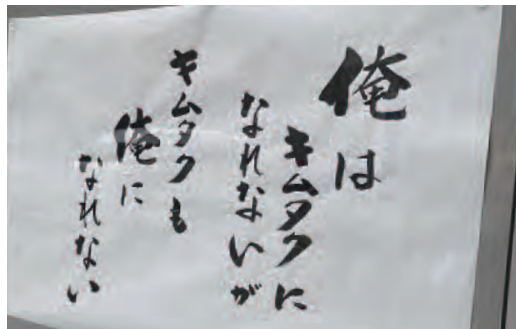 俺は
キムタクに
なれないが
キムタクも
俺に
なれない